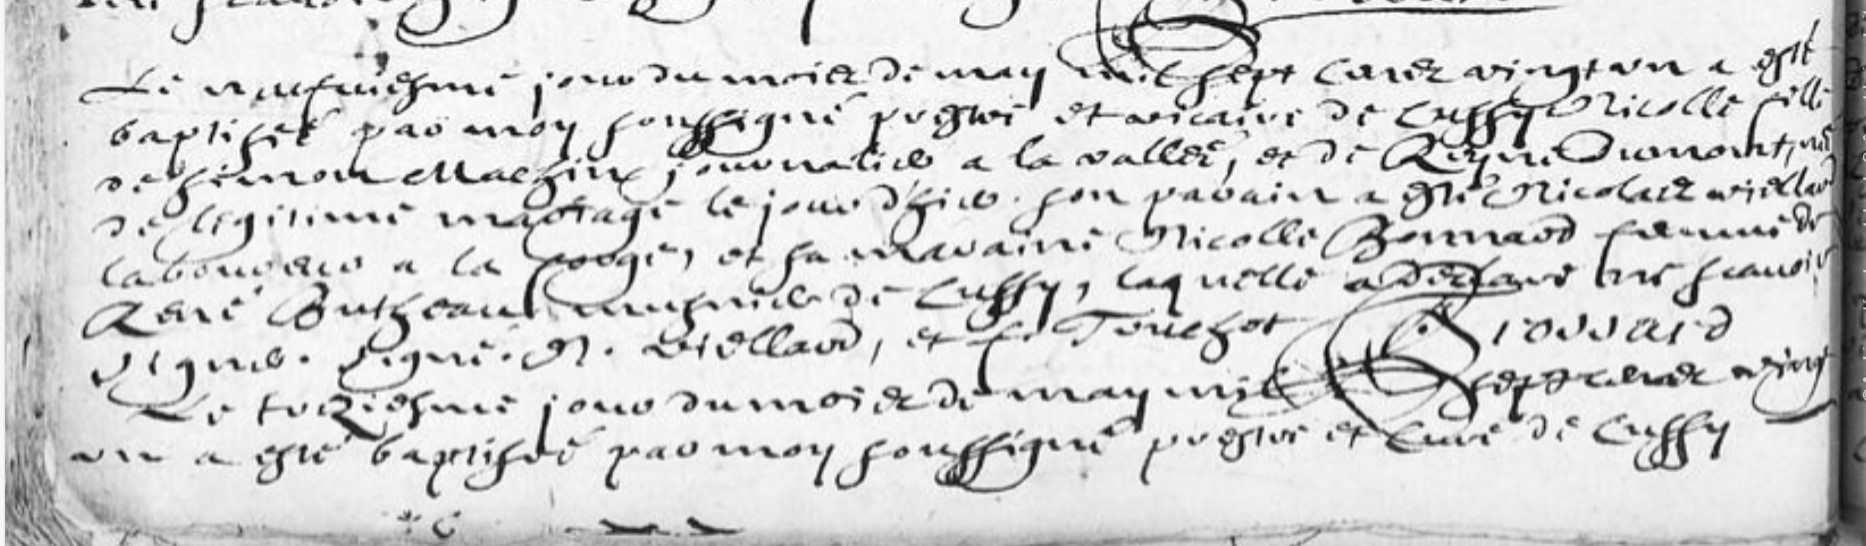 Le neufviesme jour du mois de may mil sept cens vingt un a esté
baptisée par moy soussigné prestre et vicaire de Cuffy Nicolle fille
de Simon Machin journalier a la vallée, et de Reyne Dumont, née
de legitime mariage le jour d'hier. son parain a esté Nicolas viellard
laboureur a la et sa maraine Nicolle Bonnard femme de
René Butheau musnier de Cuffy, laquelle a declaré ne scavoir
signer. Signé. N. Viellard, et f. Touchot Girouard
Le treziesme jour du mois de may mil sept cens vingt
un a esté baptisée par moy soussigné prestre et curé de Cuffy